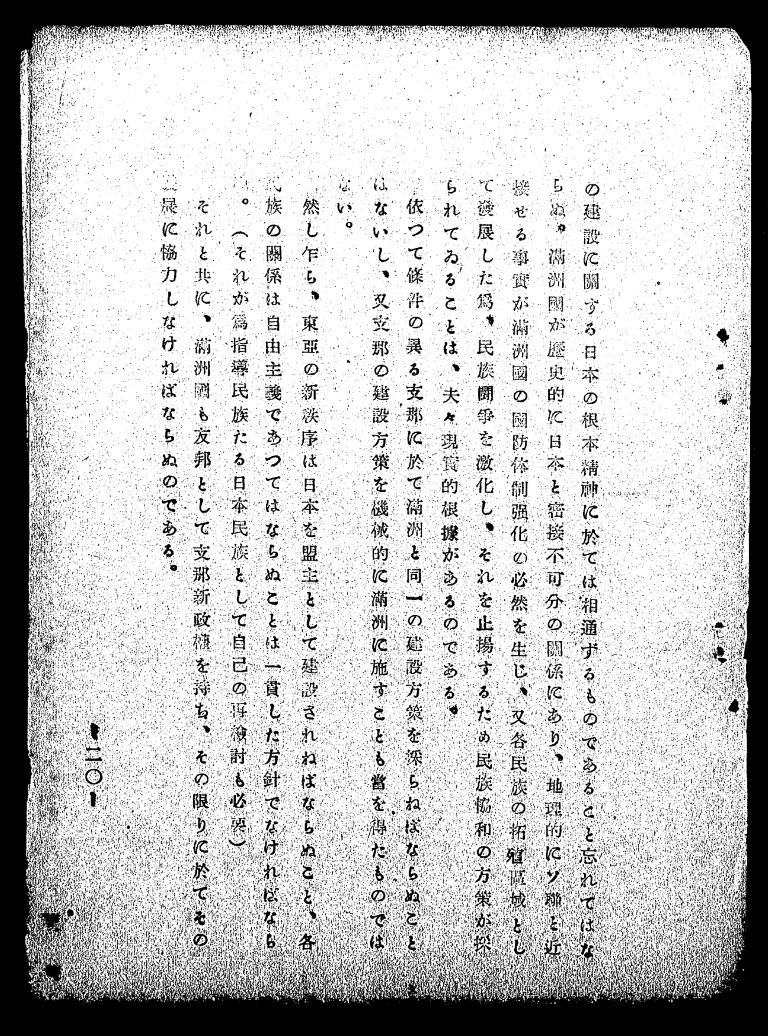 の建設に關する日本の根本精神に於ては相通ずるものであること忘れてはな
らぬ。滿洲國が歷史的に日本と密接不可分の關係にあり、地理的にソ聯と近
接せる事實が滿洲國の國防体制强化の必然を生じ、又各民族の拓殖區域とし
て發展した爲、民族鬪爭を激化し、それを止揚するため民族協和の方策が採
られてゐることは、夫々現實的根據があるのである。
依つて條件の異る支那に於て滿洲と同一の建設方策を採らねばならぬこと
はないし、又支那の建設方策を機械的に滿洲に施すことも當を得たものでは
ない。
然し乍ら、東亞の新秩序は日本を盟主として建設されねばならぬこと、各
民族の關係は自由主義であつてはならぬことは一貫した方針でなければなら
。（それが爲指導民族たる日本民族として自己の再檢討も必要）
それと共に、滿洲國も友邦として支那新政權を持ち、その限りに於てその
展に協力しなければならぬのである。
二〇